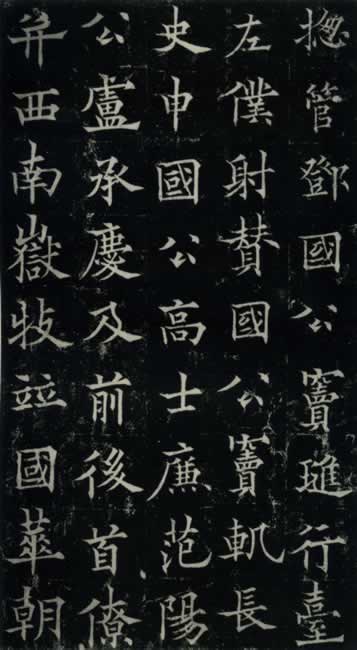 揔管鄧國公竇璡行臺
左僕射賛國公竇軌長
史申國公高士廉范陽
公盧承慶及前後首僚
并西南嶽牧並國華朝